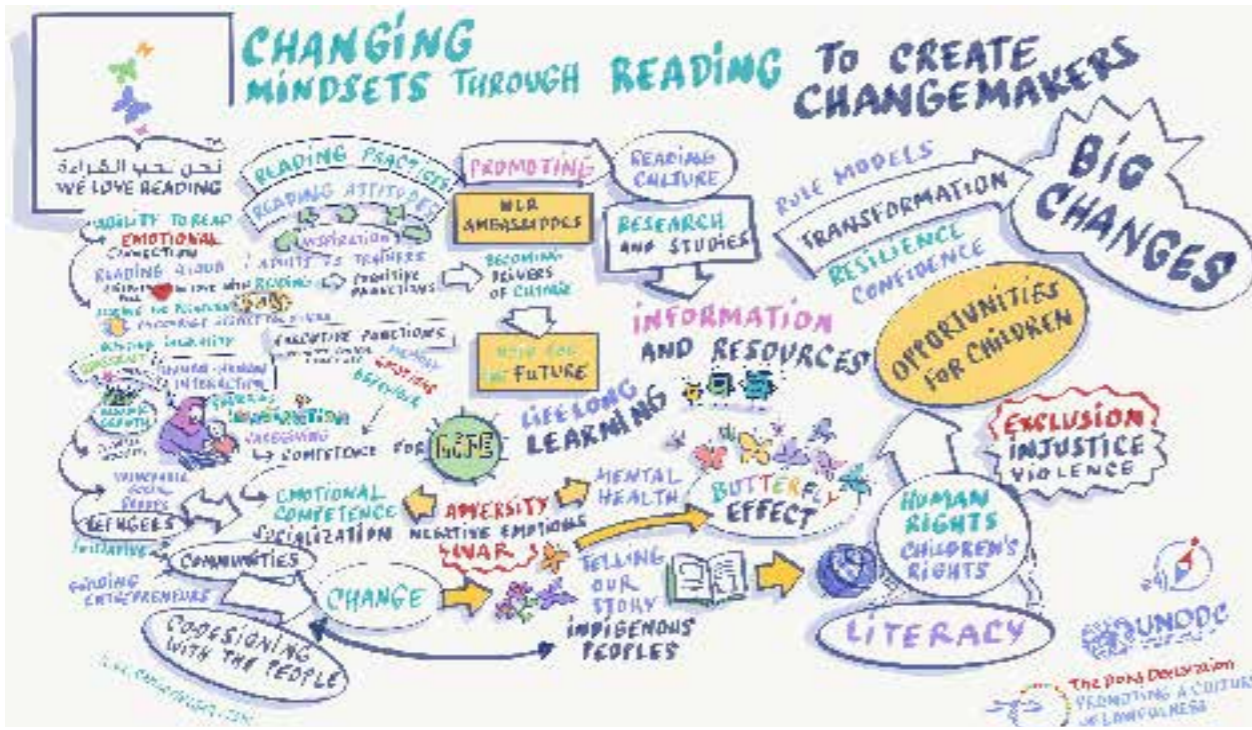 CHANGING
MINDSETS THROUGH READING
TO CREATE
CHANGEMAKERS
نحن نحب القراءة
WE LOVE READING
READING PRACTICES
READING ATTITUDES
PROMOTING
READING
CULTURE
WLR
AMBASSADORS
RESEARCH
AND STUDIES
RULE MODELS
TRANSFORMATION
RESILIENCE
CONFIDENCE
BIG
CHANGES
ABILITY TO READ
EMOTIONAL
CONNECTION
READING ALOUD
BECOMING
DRIVERS
OF CHANGE
EXECUTIVE FUNCTIONS
MEMORY
EMOTIONS
BEHAVIOR
FUTURE
INFORMATION
AND RESOURCES
OPPORTUNITIES
FOR CHILDREN
HUMAN-HUMAN
INTERACTION
COMPETENCE FOR
LIFE
LIFELONG
LEARNING
EXCLUSION
INJUSTICE
VIOLENCE
REFUGEES
EMOTIONAL
COMPETENCE
SOCIALIZATION
ADVERSITY
NEGATIVE EMOTIONS
WAR
MENTAL
HEALTH
BUTTERFLY
EFFECT
HUMAN
RIGHTS
CHILDREN'S
RIGHTS
COMMUNITIES
ENTREPRENEURS
CHANGE
TELLING
OUR
STORY
INDIGENOUS
PEOPLES
LITERACY
CODESIGNING
WITH THE PEOPLE
UNODC
The Doha Declaration
PROMOTING A CULTURE
OF LAWFULNESS